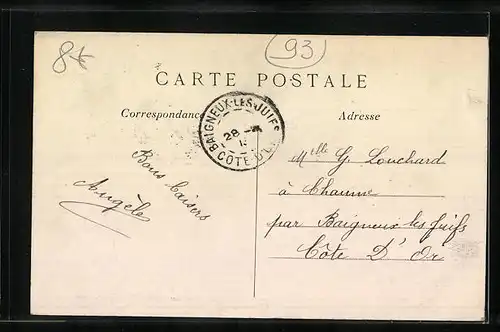 8f
93
CARTE POSTALE
Correspondance
Adresse
BAIGNEUX-LES-JUIFS
28
CÔTE D'OR
Bons baisers
Angèle
Mlle G. Louchard
à Chaume
par Baigneux les Juifs
Côte D'Or